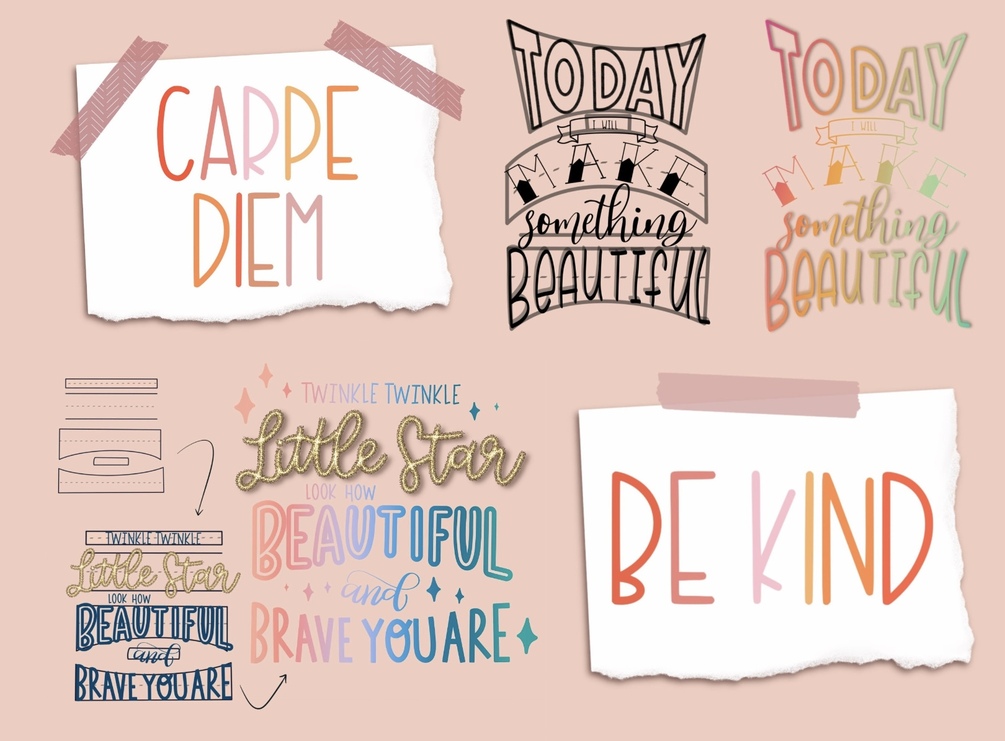 CARPE
DIEM
TODAY
I WILL
MAKE
something
BEAUTIFUL
TODAY
I WILL
MAKE
something
BEAUTIFUL
TWINKLE TWINKLE
Little Star
LOOK HOW
BEAUTIFUL
and
BRAVE YOU ARE
TWINKLE TWINKLE
Little Star
LOOK HOW
BEAUTIFUL
and
BRAVE YOU ARE
BE KIND